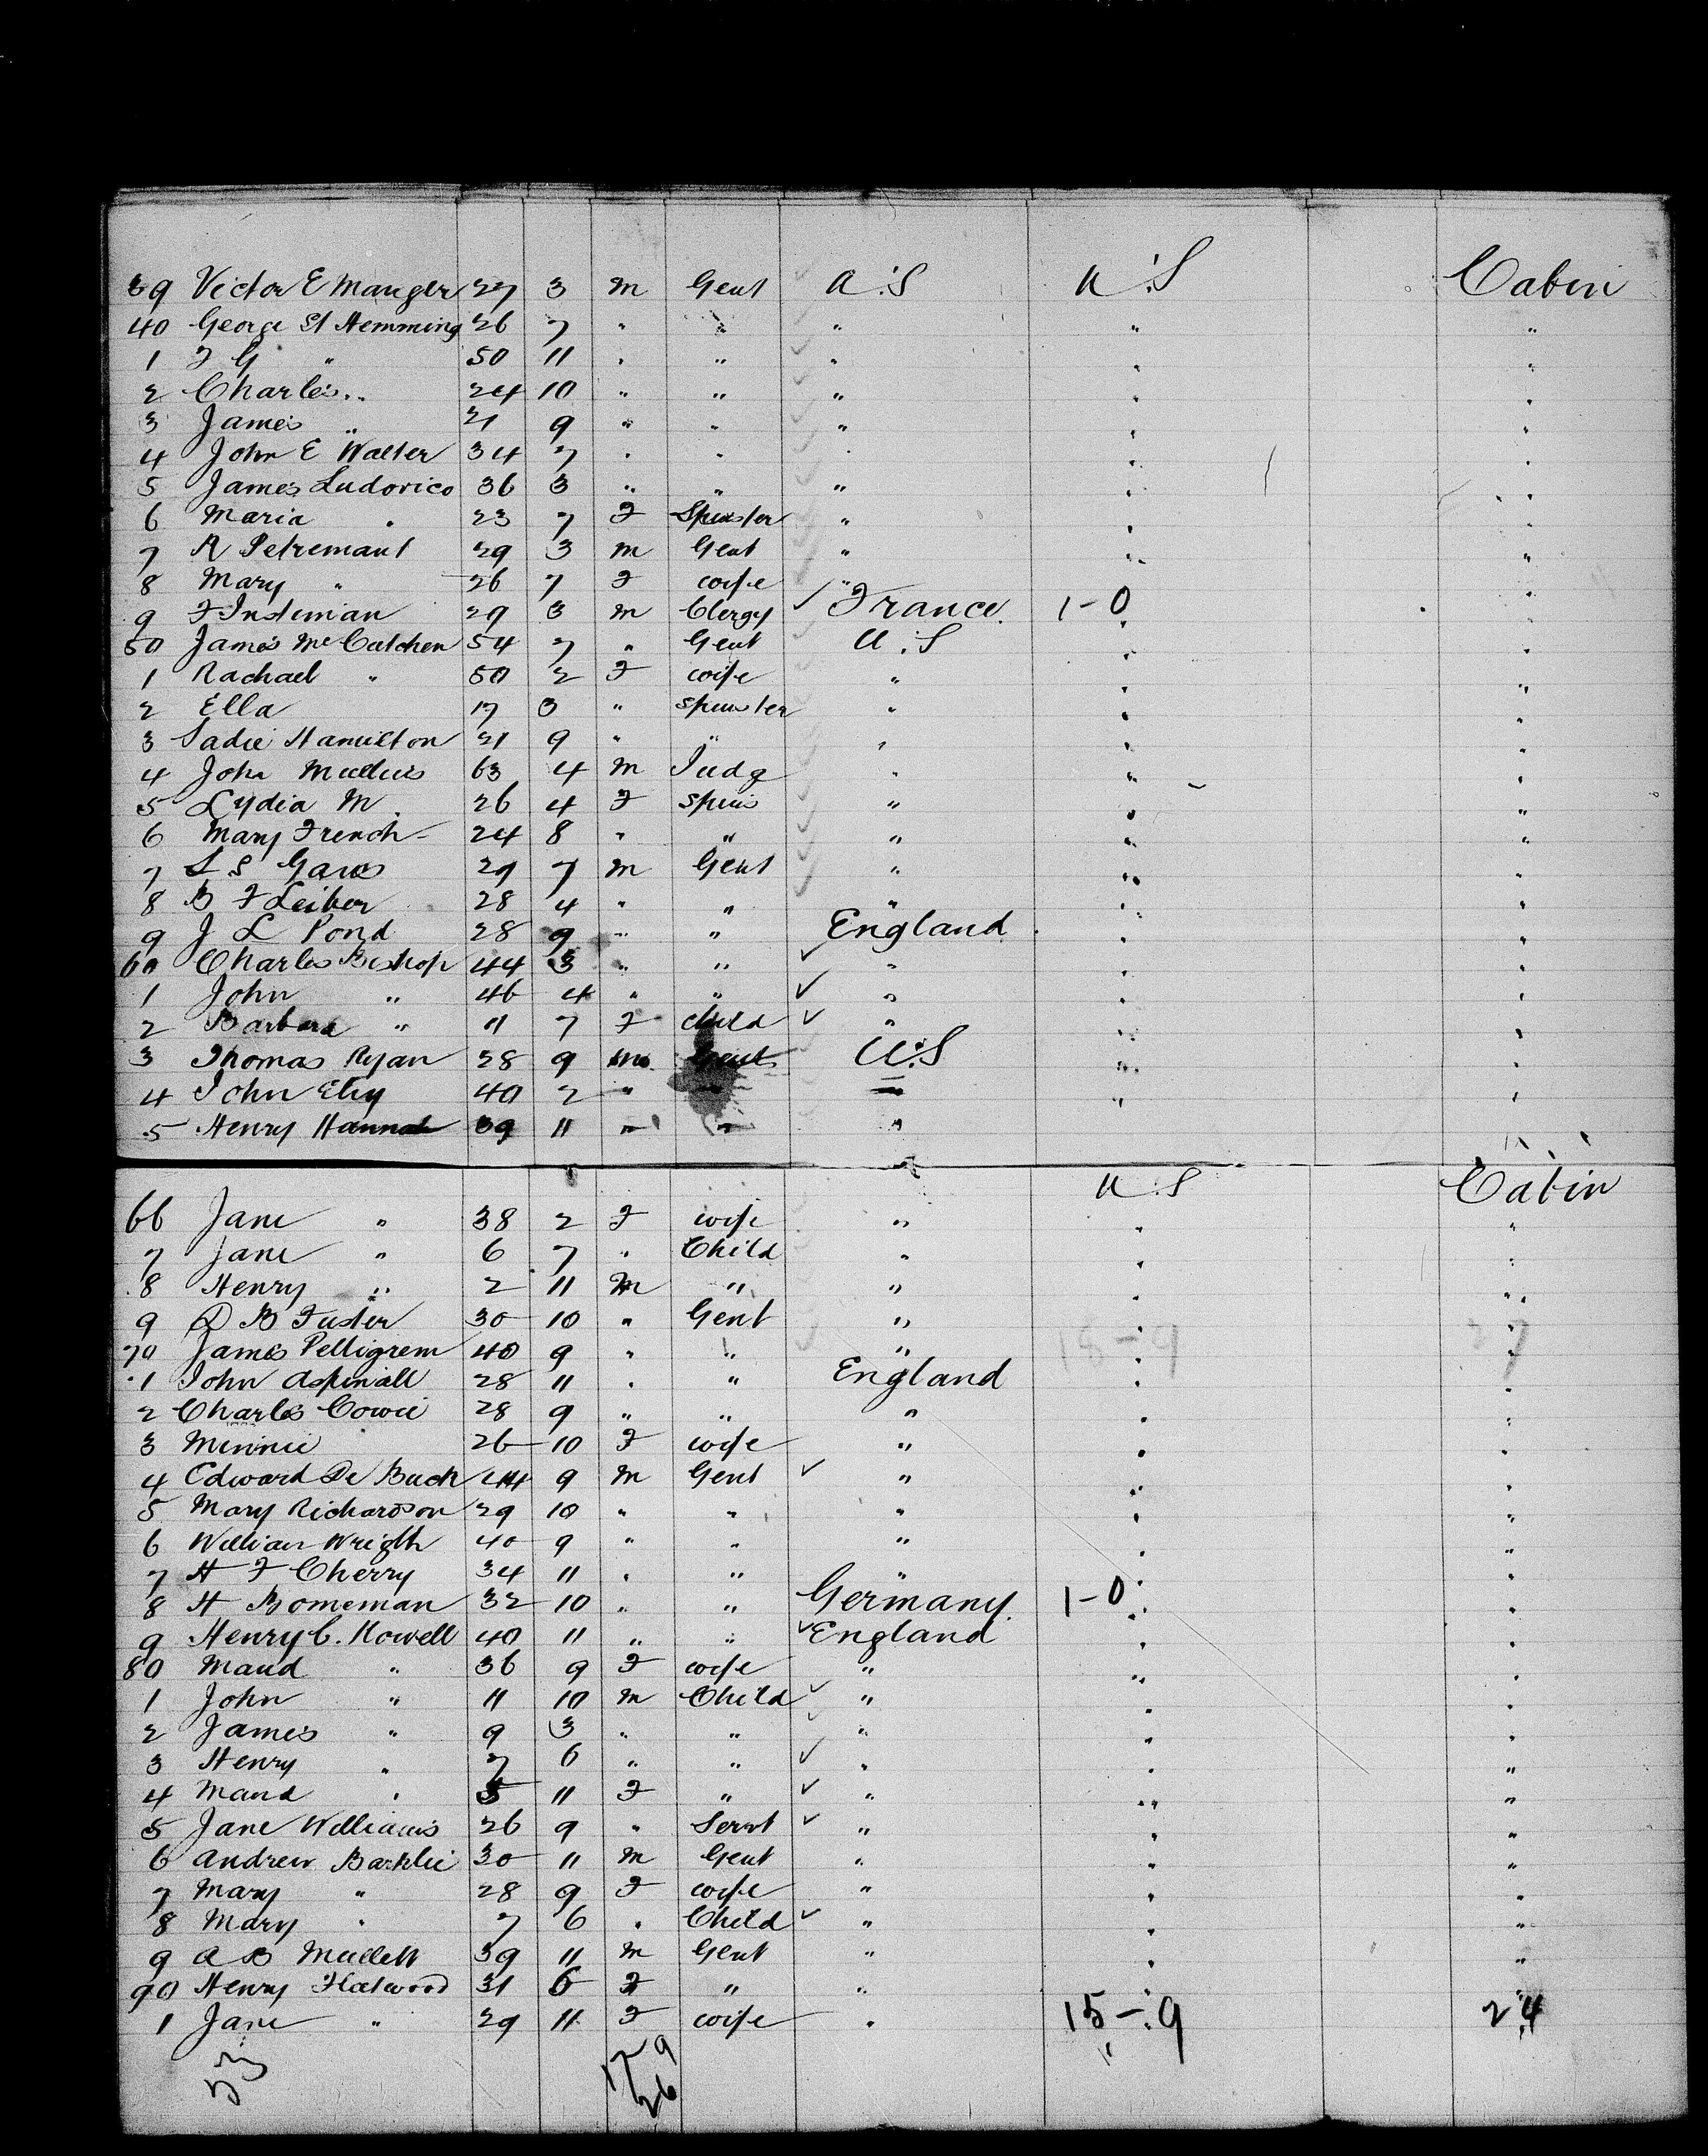 39 Victor E Manger 27 3 m Gent U.S U.S Cabin
40 George St Hemming 26 7 " " " " "
1 F G " 50 11 " " " " "
2 Charles " 24 10 " " " " "
3 James " 21 9 " " " " "
4 John E Walter 34 7 " " " " "
5 James Ludovico 36 3 " " " " "
6 Maria " 23 7 F Spinster " " "
7 A Petremant 29 3 m Gent " " "
8 Mary " 26 7 F wife " " "
9 F Insteman 29 3 m Clergy France 1-0 " "
50 James McCutchen 54 7 " Gent U.S " "
1 Rachael " 50 2 F wife " " "
2 Ella 17 3 " Spinster " " "
3 Sadie Hamilton 21 9 " " " " "
4 John 63 4 M Judg " " "
5 Lydia M 26 4 F Spins " " "
6 Mary French 24 8 " " " " "
7 L S 29 7 m Gent " " "
8 B F Leiber 28 4 " " " " "
9 J L Pond 28 9 " " England " "
60 Charles Bishop 44 3 " " " " "
1 John " 46 4 " " " " "
2 Barbara " 11 7 F child " " "
3 Thomas Ryan 28 9 m Gent U.S " "
4 John Ely 40 2 " " " " "
5 Henry Hannah 39 11 " " " " "
U.S Cabin
66 Jane " 38 2 F wife " " "
7 Jane " 6 7 " Child " " "
8 Henry " 2 11 M " " " "
9 D B Fuster 30 10 " Gent " " "
70 James Pelligrem 40 9 " " " 15-9 " 27
1 John Aspinall 28 11 " " England " "
2 Charles Cowie 28 9 " " " " "
3 Minnie 26 10 F wife " " "
4 Edward De Buck 44 9 M Gent " " "
5 Mary Richardson 29 10 " " " " "
6 William Wrigth 40 9 " " " " "
7 H F Cherry 34 11 " " " " "
8 H Bomeman 32 10 " " Germany 1-0 " "
9 Henry C. Howell 40 11 " " England " "
80 Maud " 36 9 F wife " " "
1 John " 11 10 m Child " " "
2 James " 9 3 " " " " "
3 Henry " 7 6 " " " " "
4 Maud " 5 11 F " " " "
5 Jane Williams 26 9 " Servt " " "
6 Andrew Barklie 30 11 m Gent " " "
7 Mary " 28 9 F wife " " "
8 Mary " 7 6 " Child " " "
9 A B Mullett 39 11 m Gent " " "
90 Henry Flatwood 31 6 F " " " "
1 Jane " 29 11 F wife " 15-9 24
53 17 9
26